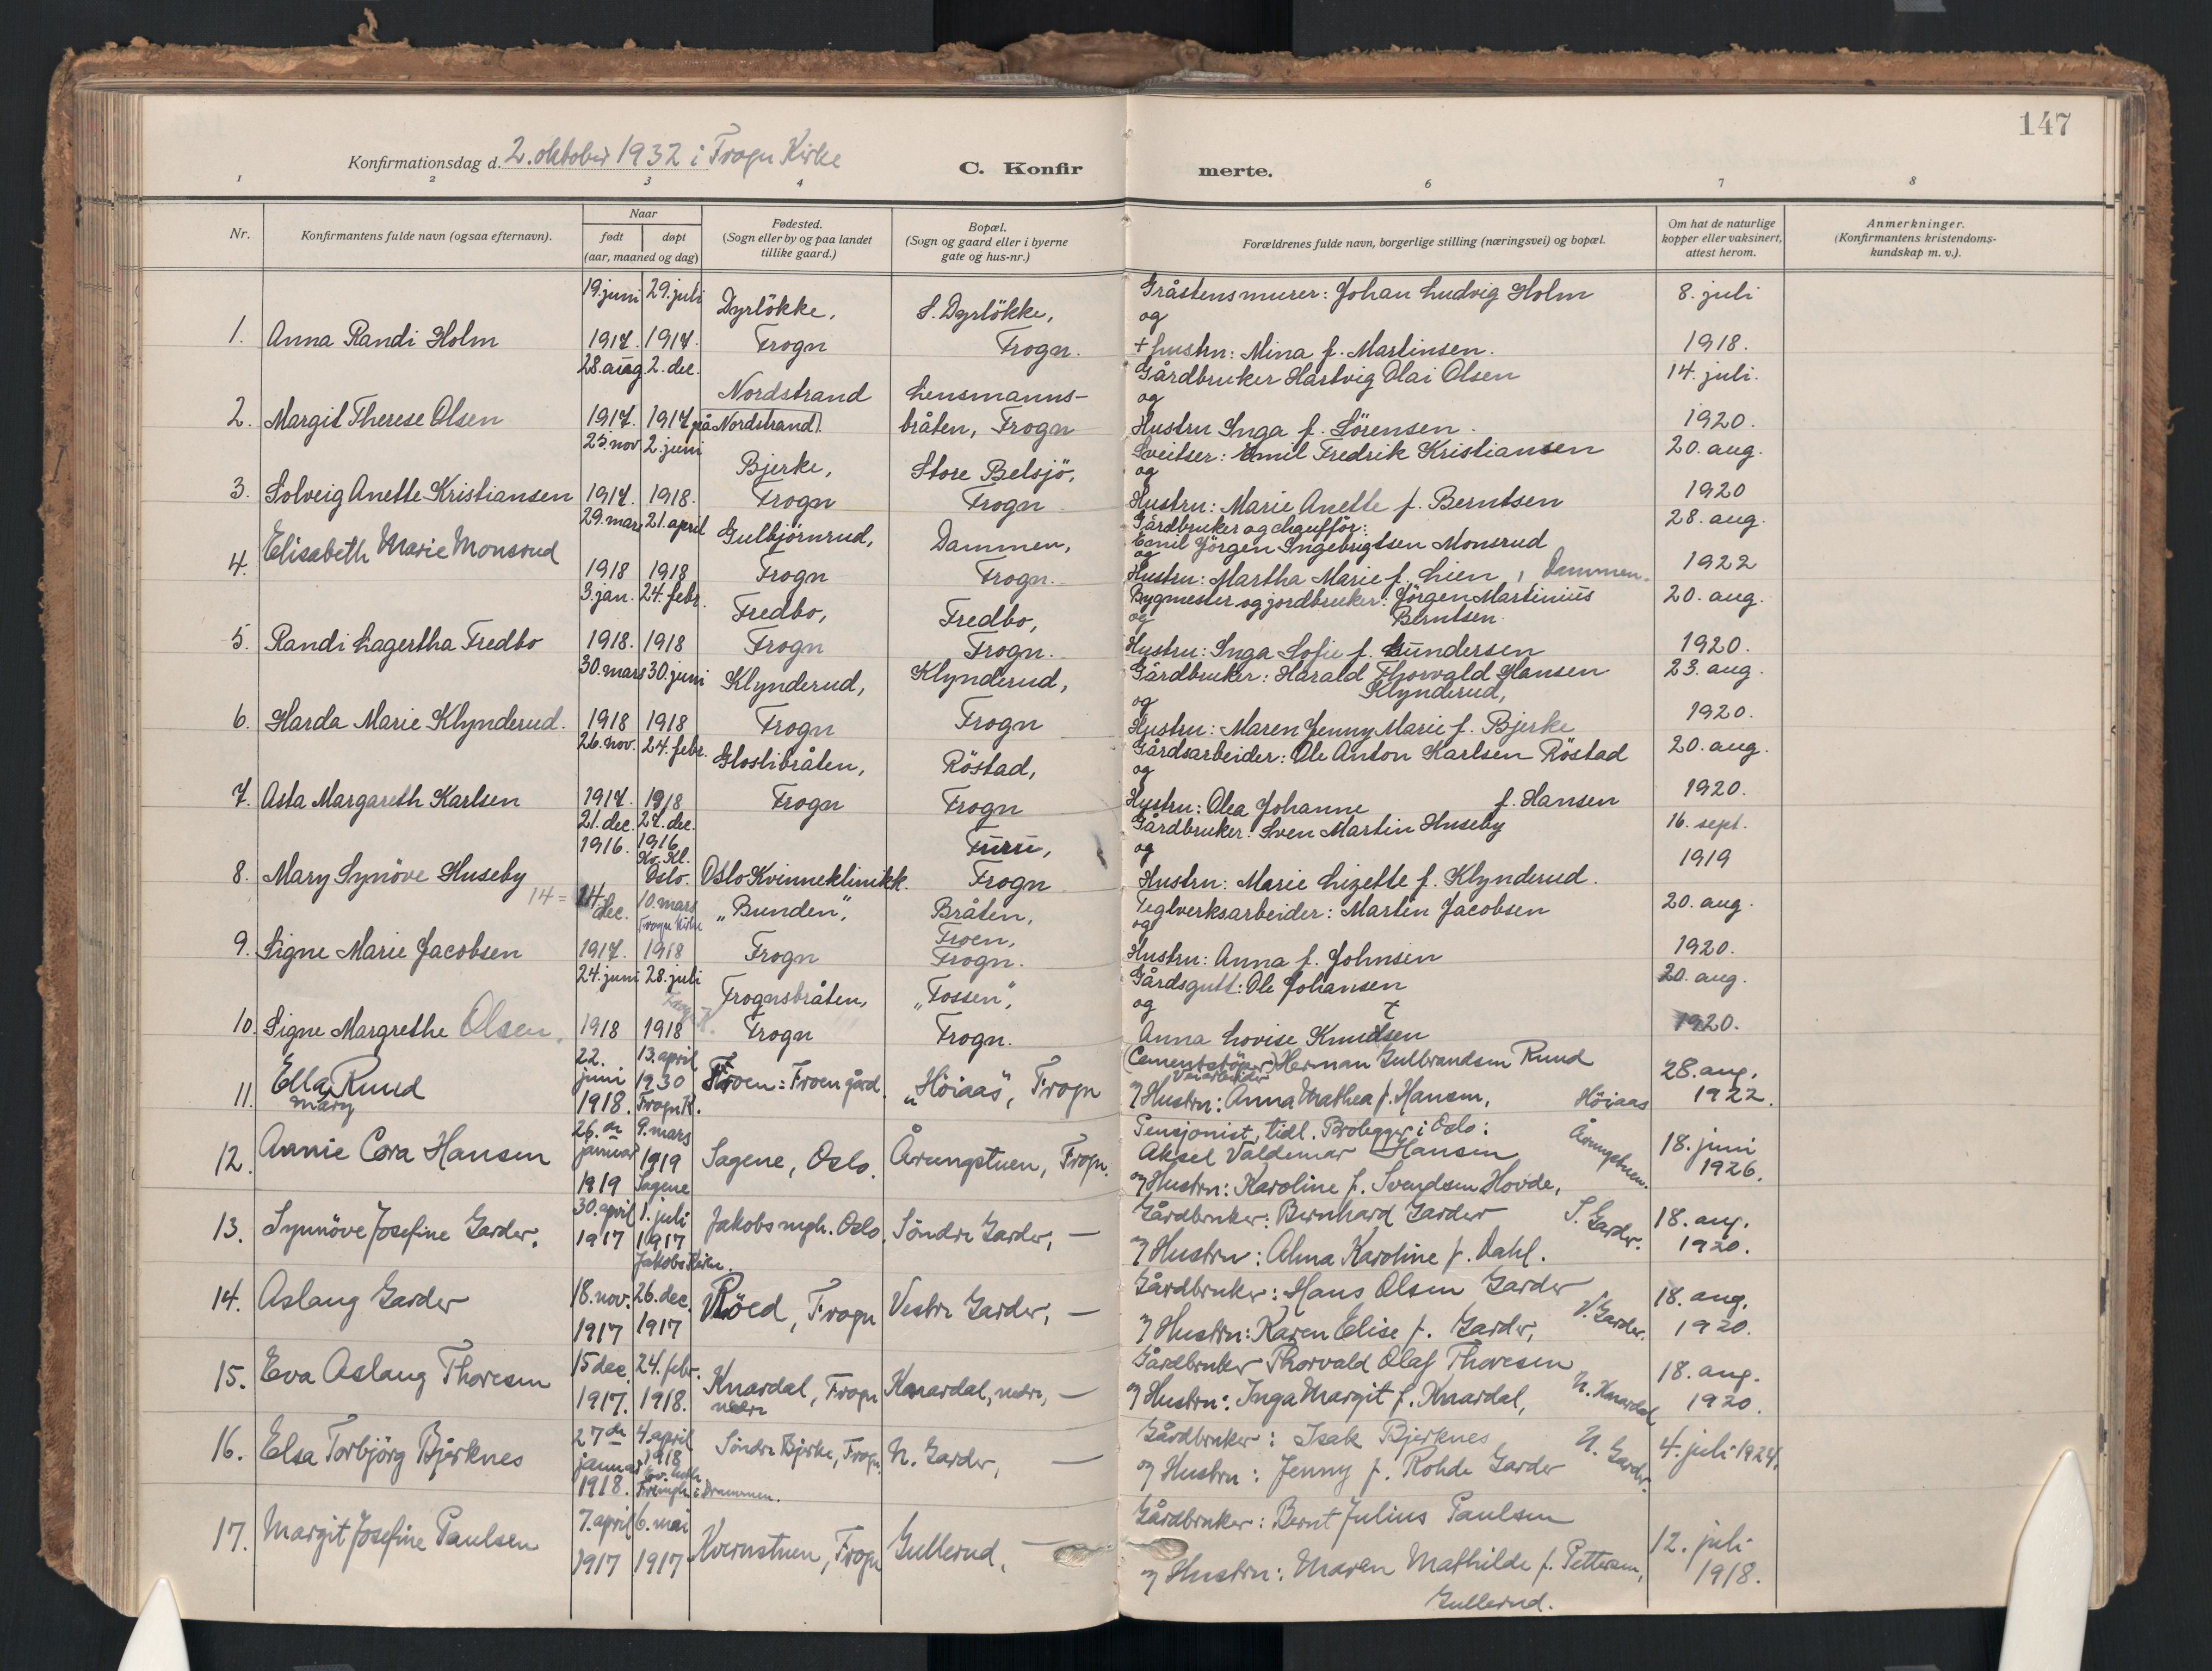 147
Konfirmationsdag d. 2. oktober 1932 i Frogn Kirke
C. Konfirmerte.
1 2 3 4 6 7 8
Nr.
Konfirmantens fulde navn (ogsaa efternavn).
Naar
født døpt
(aar, maaned og dag)
Fødested.
(Sogn eller by og paa landet
tillike gaard.)
Bopæl.
(Sogn og gaard eller i byerne
gate og hus-nr.)
Forældrenes fulde navn, borgerlige stilling (næringsvei) og bopæl.
Om hat de naturlige
kopper eller vaksinert,
attest herom.
Anmerkninger.
(Konfirmantens kristendoms-
kundskap m. v.).
1. Anna Randi Holm
19. juni 1917.
29. juli 1917.
Dyrløkke,
Frogn
S. Dyrløkke,
Frogn.
Gråstensmurer: Johan Ludvig Holm
og
+ hustru: Mina f. Martinsen.
8. juli
1918.
2. Margit Therese Olsen
28. aug 1917.
2. dec. 1917
Nordstrand
på Nordstrand
Lensmanns-
bråten, Frogn
Gårdbruker Hartvig Olai Olsen
og
Hustru Inga f. Sörensen.
14. juli.
1920.
3. Solveig Anette Kristiansen
25. nov. 1917.
2. juni 1918.
Bjerke,
Frogn
Store Belsjö,
Frogn
Sveitser: Emil Fredrik Kristiansen
og
Hustru: Marie Anette f. Berntsen
20. aug.
1920
4. Elisabeth Marie Monsrud
29. mars 1918
21. april 1918
Gulbjörnrud,
Frogn
Dammen,
Frogn.
Gårdbruker og chaufför:
Emil Jörgen Ingebrigtsen Monsrud
og
Hustru: Martha Marie f. Lien, Dammen.
28. aug.
1922
5. Randi Lagertha Fredbo
3. jan. 1918.
24. febr. 1918
Fredbo,
Frogn
Fredbo,
Frogn.
Bygmester og jordbruker: Jörgen Martinius
og Berntsen.
Hustru: Inga Sofie f. Gundersen
20. aug.
1920.
6. Harda Marie Klynderud.
30. mars 1918
30. juni 1918
Klynderud,
Frogn
Klynderud,
Frogn
Gårdbruker: Harald Thorvald Hansen
og Klynderud,
Hustru: Maren Jenny Marie f. Bjerke
23. aug.
1920.
7. Asta Margareth Karlsen
26. nov. 1917.
24. febr. 1918
Glostibråten,
Frogn
Röstad,
Frogn
Gårdsarbeider: Ole Anton Karlsen Röstad
og
Hustru: Olea Johanne f. Hansen
20. aug.
1920.
8. Mary Synöve Huseby
21. dec. 1916.
27. dec. 1916
Kv. Kl.
Oslo.
Oslo Kvinneklinikk.
Furu,
Frogn
Gårdbruker: Sven Martin Huseby
og
Hustru: Marie Lizette f. Klynderud.
16. sept.
1919
9. Signe Marie Jacobsen
14 = 14 dec. 1917.
10. mars
Frogn Kirke
1918
"Bunden",
Frogn
Bråten,
Froen,
Frogn.
Teglverksarbeider: Martin Jacobsen
og
Hustru: Anna f. Johnsen
20. aug.
1920.
10. Signe Margrethe Olsen.
24. juni 1918
28. juli 1918
Frogn K.
Frognsbråten,
Frogn
"Fossen",
Frogn.
Gårdsgutt: Ole Johansen
og
Anna Lovise Knudtsen
20. aug.
1920.
11. Ella Mary Ruud
22. juni 1918.
13. april 1930
Frogn K.
Froen: Froen gård.
"Höiaas", Frogn
(Cementstöper) Herman Gulbrandsen Ruud
Veiarbeider
og Hustru: Anna Mathea f. Hansen, Höiaas
28. aug.
1922.
12. Annie Cora Hansen
26. de januar 1919
9. mars 1919
Sagene
Sagene, Oslo.
Årungstuen, Frogn.
Pensjonist, tidl. Brolegger i Oslo:
Aksel Valdemar Hansen
og Hustru: Karoline f. Svendsen Hovde, Årungstuen.
18. juni
1926.
13. Synnöve Josefine Garder.
30. april 1917
1. juli 1917
Jakobs Kirke.
Jakobs mgh. Oslo.
Söndre Garder, —
Gårdbruker: Bernhard Garder S. Garder.
og Hustru: Alma Karoline f. Dahl.
18. aug.
1920.
14. Aslaug Garder
18. nov. 1917
26. dec. 1917
Röed, Frogn
Vestre Garder, —
Gårdbruker: Hans Olsen Garder
og Hustru: Karen Elise f. Garder, V. Garder.
18. aug.
1920.
15. Eva Aslaug Thoresen
15 dec. 1917.
24. febr. 1918.
Knardal, Frogn
nedre
Knardal, nedre, —
Gårdbruker Thorvald Olaf Thoresen
og Hustru: Inga Margit f. Knardal, N. Knardal
18. aug.
1920.
16. Elsa Torbjörg Bjerknes
27 de januar 1918.
4. april 1918
i Drammen.
Söndre Bjerke, Frogn.
N. Garder, —
Gårdbruker: Isak Bjerknes
og Hustru: Jenny f. Rohde Garder N. Garder.
4. juli 1924.
17. Margit Josefine Paulsen
7. april 1917
6. mai 1917
Kvernstuen, Frogn
Gullerud, —
Gårdbruker: Bernt Julius Paulsen
og Hustru: Maren Mathilde f. Pettersen,
Gullerud.
12. juli
1918.